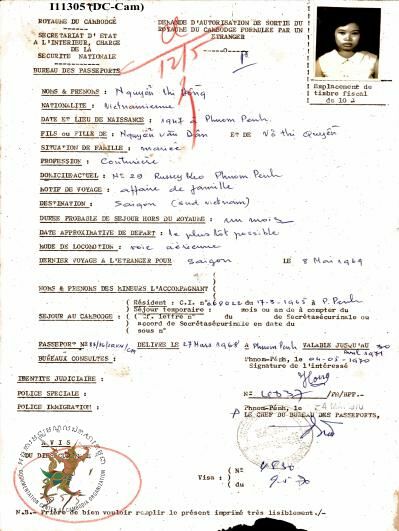 I11305 (DC-Cam)
ROYAUME DU CAMBODGE
SECRETARIAT D'ETAT
A L'INTERIEUR, CHARGE
DE LA
SECURITE NATIONALE
BUREAU DES PASSEPORTS
DEMANDE D'AUTORISATION DE SORTIE DU
ROYAUME DU CAMBODGE FORMULEE PAR UN
ETRANGER
12/5
Emplacement de
timbre fiscal
de 10 R
NOMS & PRENOMS : Nguyễn thị Đông
NATIONALITE : Vietnamienne
DATE ET LIEU DE NAISSANCE : 1927 à Phnom Penh
FILS ou FILLE de : Nguyễn văn Dần ET de Võ thị Quyền
SITUATION DE FAMILLE : mariée
PROFESSION : Couturière
DOMICILE ACTUEL : N° 29 Russey Keo Phnom Penh
MOTIF DE VOYAGE : affaire de famille
DESTINATION : Saigon (Sud Vietnam)
DUREE PROBABLE DE SEJOUR HORS DU ROYAUME : un mois
DATE APPROXIMATIVE DE DEPART : le plus tôt possible
MODE DE LOCOMOTION : voie aérienne
DERNIER VOYAGE A L'ETRANGER POUR Saigon LE 8 Mai 1969
NOMS & PRENOMS DES MINEURS L'ACCOMPAGNANT
SEJOUR AU CAMBODGE :
Résident : C.I. n° 669022 du 17-3-1965 à P. Penh
Séjour temporaire : mois ou an de à compter du
f. lettre n° du de Secrétasécurinale ou
accord de Secrétasécurinale en date du
sous n°
PASSEPORT N° DELIVRE LE 27 Mars 1968 A Phnom Penh VALABLE JUSQU'AU 30
avril 1971
BUREAUX CONSULTES :
Phnom-Penh, le 04-05-1970
Signature de l'intéressé
IDENTITE JUDICIAIRE :
POLICE SPECIALE :
POLICE IMMIGRATION :
N° /PN/BPP.-
Phnom-Penh, le
LE CHEF DU BUREAU DES PASSEPORTS,
AVIS
DU DIRECTEUR
DOCUMENTATION CENTER OF CAMBODIA ORGANIZATION
Visa :
(N°
(du
N.B.- Prière de bien vouloir remplir le présent imprimé très lisiblement./-